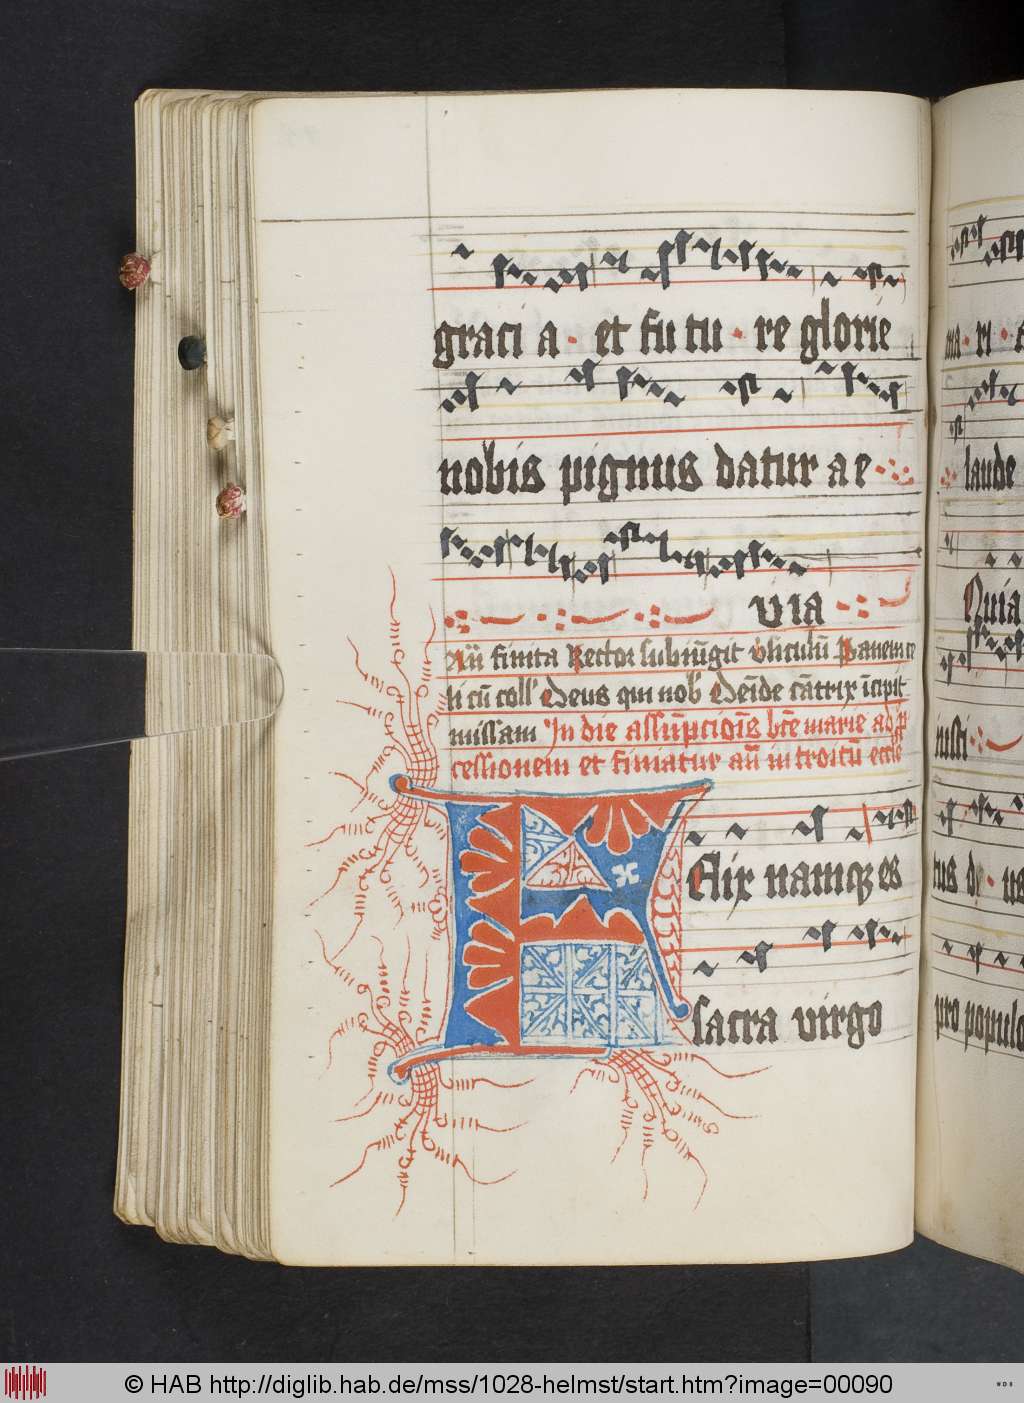 graci a · et fu tu · re glorie
nobis pignus datur a e
uia
Añ finita Rector subiũgit v̓siculũ Panem ce
li cũ coll' Deus qui nob̓ Deĩde cãtrix ĩcipit
missam In die assũpcioĩs bt̃e marie ad p̱
cessionem et finiatur añ in troitũ eccl̃e
Felix namqꝫ es
sacra virgo
ma · ri ·
laude
Quia
tus de · us
pro populo
© HAB http://diglib.hab.de/mss/1028-helmst/start.htm?image=00090